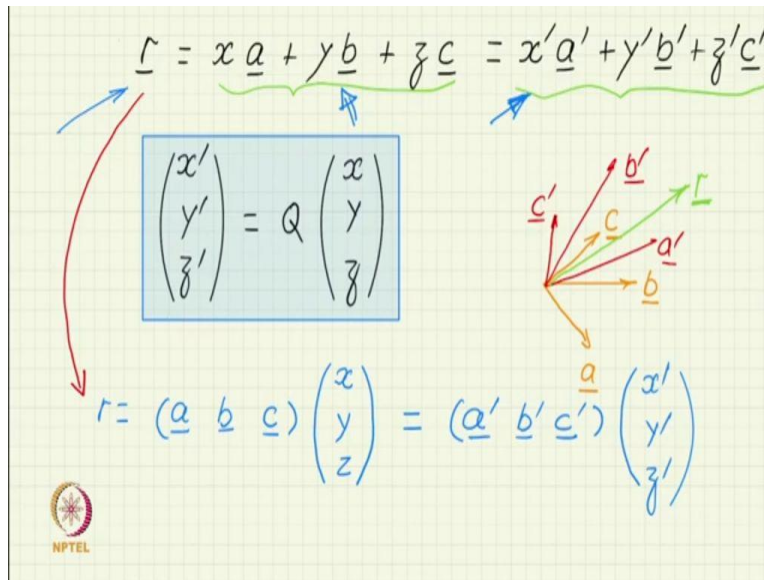 r = x a + y b + z c = x'a' + y'b' + z'c'
(x' y' z') = Q (x y z)
c' b' c r a' b a
r = (a b c) (x y z) = (a' b' c') (x' y' z')
NPTEL